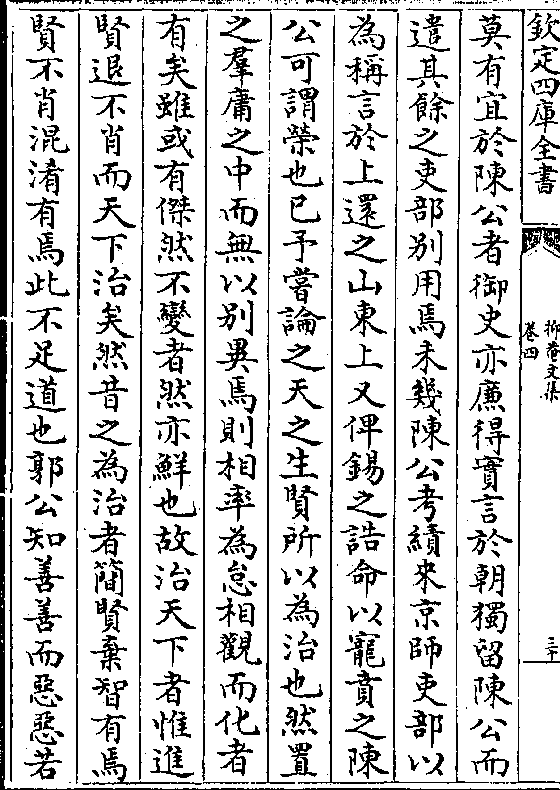 欽定四庫全書
抑菴文集
卷四
三十
莫有宜於陳公者御史亦廉得實言於朝獨留陳公而
遣其餘之吏部别用焉未幾陳公考績來京師吏部以
為稱言於上還之山東上又俾錫之誥命以寵賁之陳
公可謂榮也已予嘗論之天之生賢所以為治也然置
之羣庸之中而無以别異焉則相率為怠相觀而化者
有矣雖或有傑然不變者然亦鮮也故治天下者惟進
賢退不肖而天下治矣然昔之為治者簡賢棄智有焉
賢不肖混淆有焉此不足道也郭公知善善而惡惡若